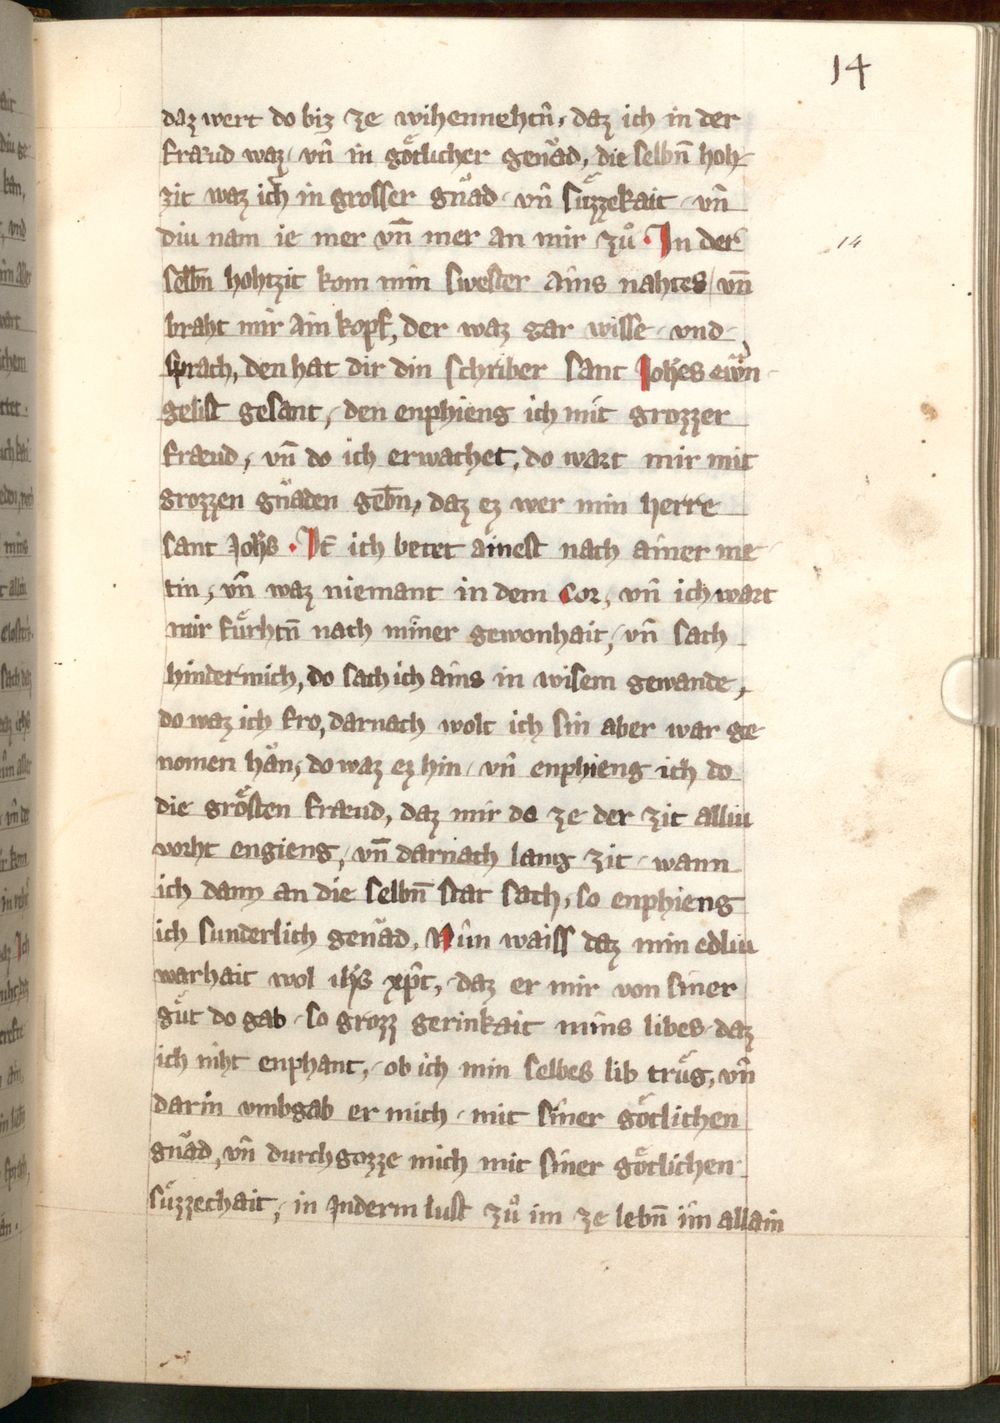 14
daz wert do biz ze wihennehtn̄, daz ich in der
fræud waz, vn̄ in goͤtlicher genad, die selbn̄ hoh
zit waz ich in grosser gnad vn̄ suͤzzekait vn̄
diu nam ie mer vn̄ mer an mir zuͦ · In der
14
selbn̄ hohtzit kom min swester ains nahtes vn̄
braht mir ain kopf, der waz gar wisse vnd
sprach, den hat dir din schriber sant Joh̄es ewan
gelist gesant, den enphieng ich mit grozzer
fræud, vn̄ do ich erwachet, do wart mir mit
grozzen gnaden gebn̄, daz ez wer min herre
sant Joh̄s · It̄ ich betet ainest nach ainer me
tin, vn̄ waz niemant in dem Cor, vn̄ ich wart
mir fuͤrhtn̄ nach miner gewonhait, vn̄ sach
hinder mich, do sach ich ains in wisem gewande,
do waz ich fro, darnach wolt ich sin aber war ge
nomen han, do waz ez hin, vn̄ enphieng ich do
die groͤsten fræud, daz mir do ze der zit alliu
vorht engieng, vn̄ darnach lang zit wann
ich dann an die selbn̄ stat sach, so enphieng
ich sunderlich genad, Nun waiss daz min edliu
warhait wol ih̄s xp̄t, daz er mir von siner
guͤt do gab so grozz gerinkait mins libes daz
ich niht enphant, ob ich min selbes lib truͤg, vn̄
darin vmbgab er mich mit siner goͤtlichen
gnad, vn̄ durchgozze mich mit siner goͤtlichen
suͤzzechait, in Inderm lust zuͦ im ze lebn̄ im allain